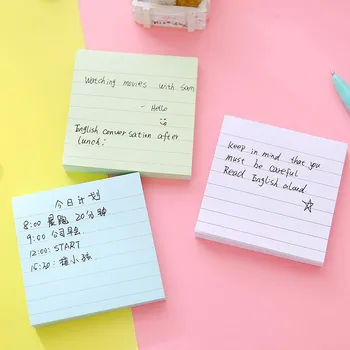 Watching movies with sam
- Hello
English conversation after
lunch:
Keep in mind that you
must be careful
Read English aloud
今日计划
8:00 晨跑 20分钟
9:00 公司早会
12:00: START
15:30: 接小孩